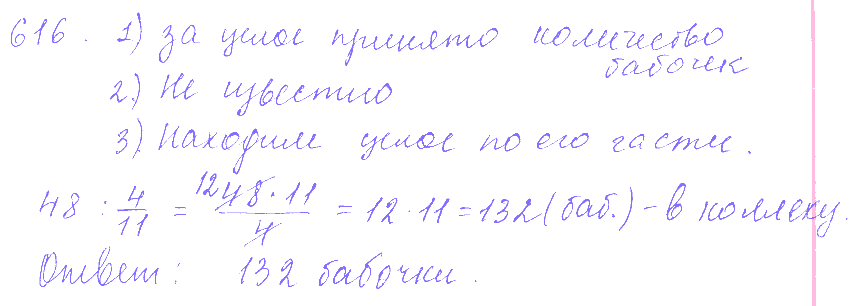 616. 1) За целое принято количество
бабочек
2) Не известно
3) Находим целое по его части.
48 : 4/11 = 12 48·11/4 = 12·11 = 132 (баб.) - в коллекц.
Ответ: 132 бабочки.